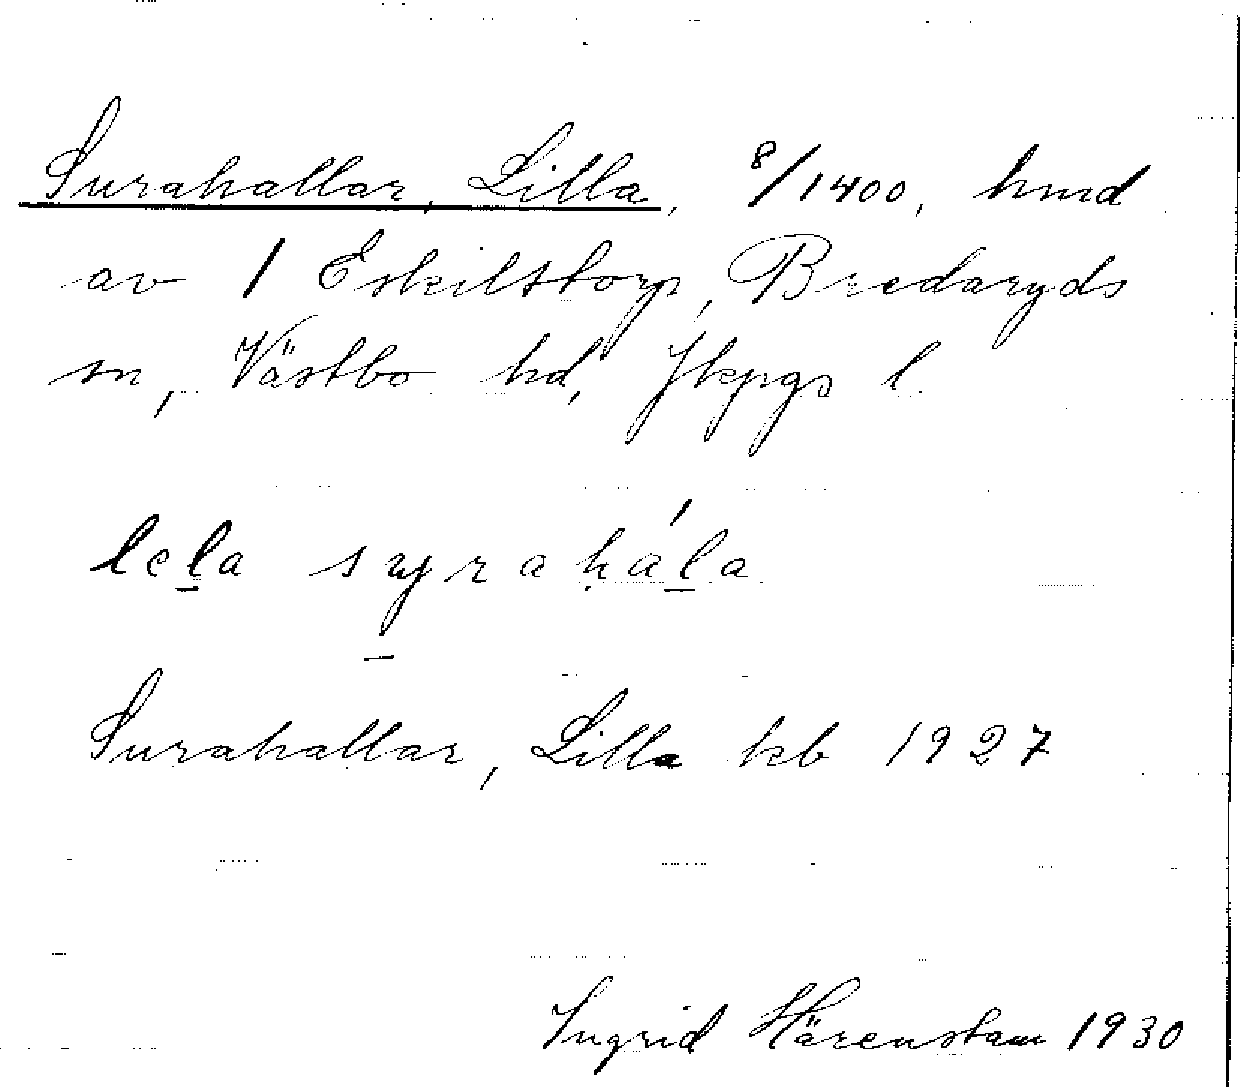 Surahallar, Lilla, 8/1400, hmd
av 1 Eskilstorp, Bredaryds
sn, Västbo hd, Jkpgs l.
lela syraha´la
Surahallar, Lilla kb 1927
Ingrid Härenstam 1930